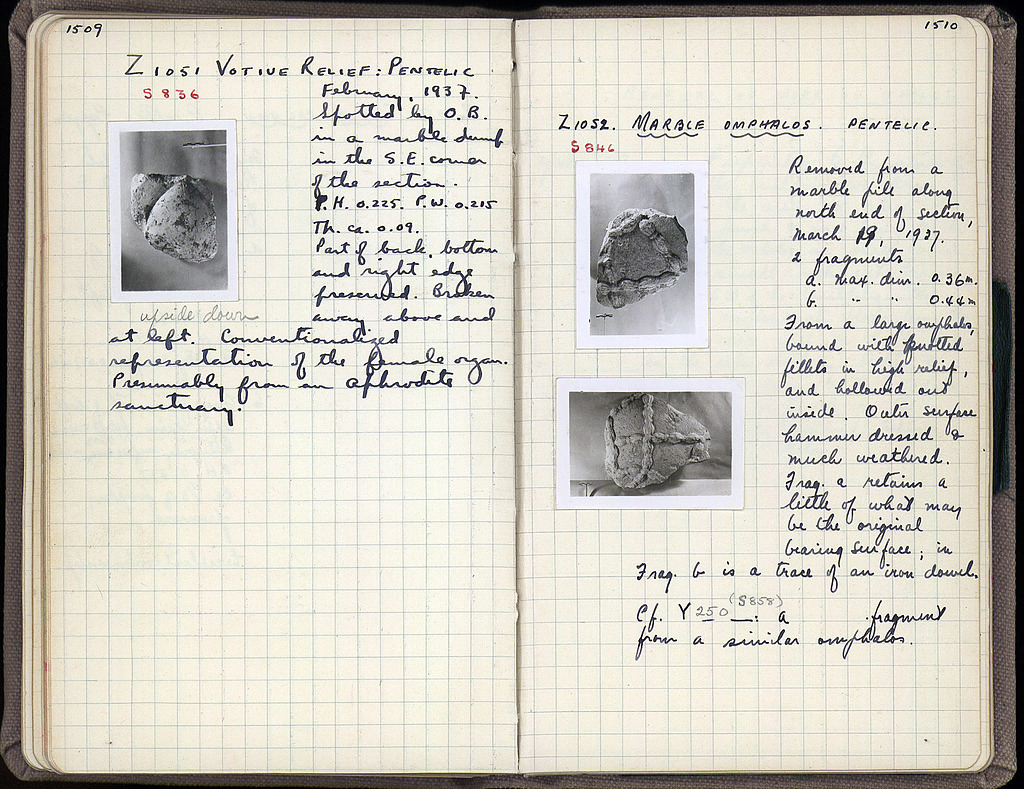 1509
Z 1051 VOTIVE RELIEF: PENTELIC
S 836
February, 1937.
Spotted by O.B.
in a marble dump
in the S.E. corner
of the section.
P.H. 0.225. P.W. 0.215
Th. ca. 0.09.
Part of back, bottom
and right edge
preserved. Broken
away above and
upside down
at left. Conventionalized
representation of the female organ.
Presumably from an Aphrodite
sanctuary.
1510
Z1052. MARBLE OMPHALOS. PENTELIC.
S 846
Removed from a
marble pile along
north end of section,
March 19, 1937.
2 fragments
a. Max. dim. 0.36m.
b. " " 0.44m
From a large omphalos,
bound with knotted
fillets in high relief,
and hollowed out
inside. Outer surface
hammer dressed &
much weathered.
Frag. a retains a
little of what may
be the original
bearing surface; in
Frag. b is a trace of an iron dowel.
(S858)
Cf. Y 250 : a fragment
from a similar omphalos.